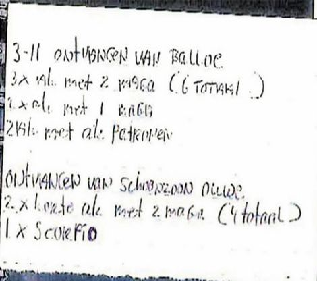 3-11 ONTVANGEN VAN Balloe
3x ak met 2 maga (6 TOTAAL)
1x ak met 1 maga
met ak Patronen
ONTVANGEN VAN Schoonzoon
2x korte ak met 2 maga (4 totaal)
1x Scorpio